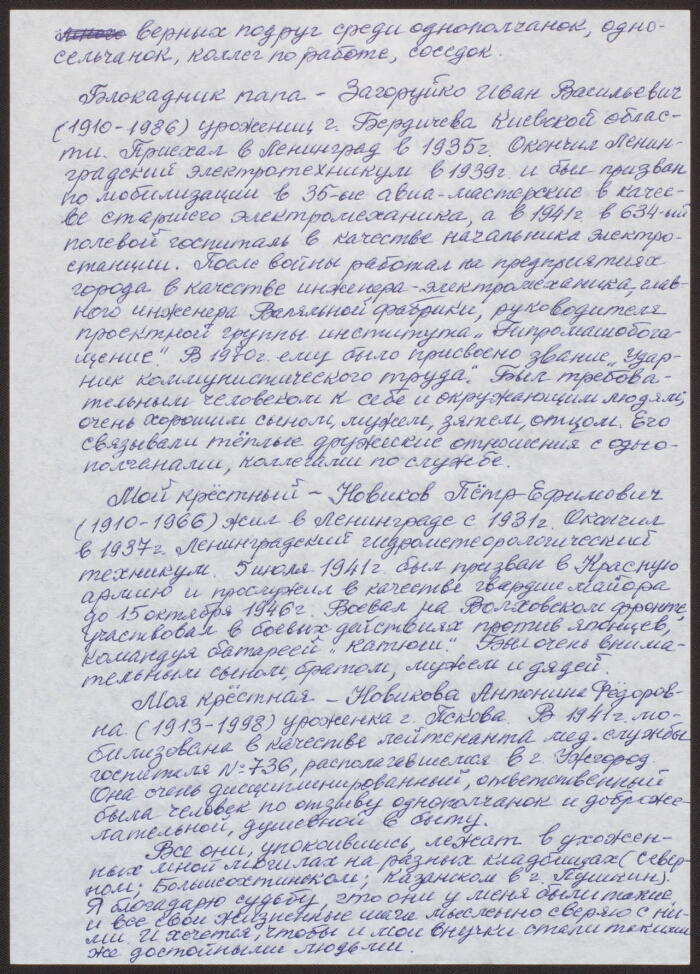 верных подруг среди однополчанок, одно-
сельчанок, коллег по работе, соседок.
Блокадник папа – Загоруйко Иван Васильевич
(1910-1986) уроженец г. Бердичева Киевской облас-
ти. Приехал в Ленинград в 1935г. Окончил Ленин-
градский электротехникум в 1939г. и был призван
по мобилизации в 35-ые авиа-мастерские в качес-
ве старшего электромеханика, а в 1941г. в 634-ый
полевой госпиталь в качестве начальника электро-
станции. После войны работал на предприятиях
города в качестве инженера-электромеханика, глав-
ного инженера Валяльной фабрики, руководителя
проектной группы института „Гипромашобога-
щение". В 1970г. ему было присвоено звание „Удар-
ник коммунистического труда". Был требова-
тельным человеком к себе и окружающим людям,
очень хорошим сыном, мужем, зятем, отцом. Его
связывали тёплые дружеские отношения с одно-
полчанами, коллегами по службе.
Мой крёстный – Новиков Пётр Ефимович
(1910-1966) жил в Ленинграде с 1931г. Окончил
в 1937г. Ленинградский гидрометеорологический
техникум. 5 июля 1941г. был призван в Красную
армию и прослужил в качестве гвардии майора
до 15 октября 1946г. Воевал на Волховском фронте,
участвовал в боевых действиях против японцев,
командуя батареей „Катюш". Был очень внима-
тельным сыном, братом, мужем и дядей.
Моя крёстная – Новикова Антонина Фёдоров-
на (1913-1998) уроженка г. Пскова. В 1941г. мо-
билизована в качестве лейтенанта мед. службы
госпиталя № 736, располагавшемся в г. Ужгород.
Она очень дисциплинированный, ответственный
была человек по отзыву однополчанок и доброже-
лательной, душевной в быту.
Все они, упокоившись, лежат в ухожен-
ных мной могилах на разных кладбищах (Север-
ном; Большеохтинском; Казанском в г. Пушкин).
Я благодарю судьбу, что они у меня были такие,
и все свои жизненные шаги мысленно сверяю с ни-
ми. И хочется, чтобы и мои внучки стали такими
же достойными людьми.